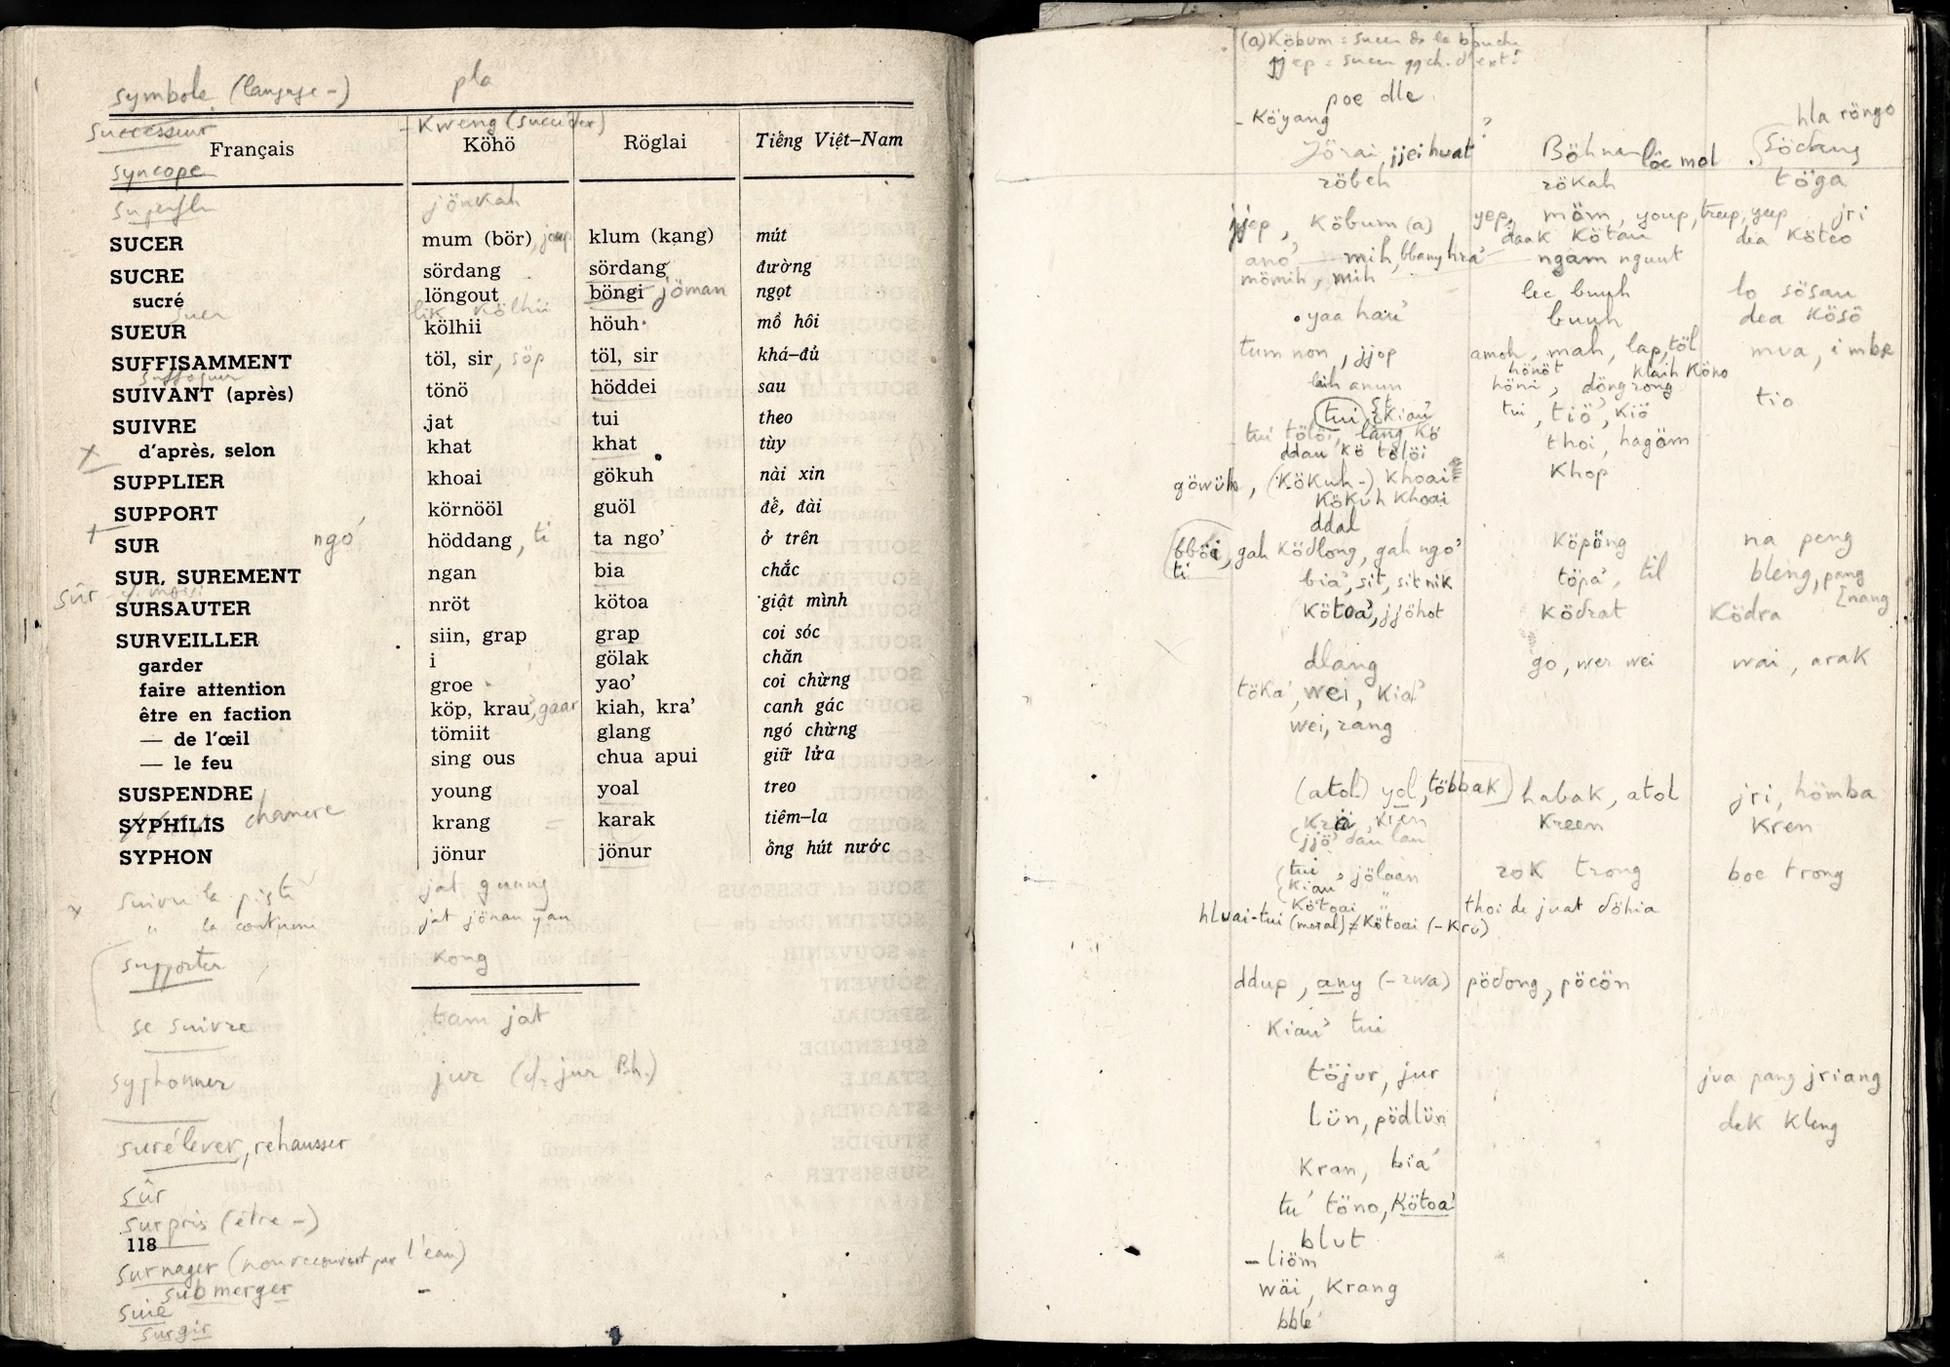 symbole (langage -) pla
successeur - Kweng (succéder)
Français Köhö Röglai Tiếng Việt–Nam
syncope
superflu jönkah
SUCER mum (bör), joup klum (kang) mút
SUCRE sördang sördang đường
sucré löngout böngi jöman ngọt
suer lik kölhii
SUEUR kölhii höuh mồ hôi
SUFFISAMMENT töl, sir, söp töl, sir khá–đủ
suffoquer
SUIVANT (après) tönö höddei sau
SUIVRE jat tui theo
d'après, selon khat khat tùy
SUPPLIER khoai gökuh nài xin
SUPPORT körnööl guöl đế, đài
SUR ngó höddang, ti ta ngo' ở trên
SUR, SUREMENT ngan bia chắc
sûr
SURSAUTER nröt kötoa giật mình
SURVEILLER siin, grap grap coi sóc
garder i gölak chăn
faire attention groe yao' coi chừng
être en faction köp, krau', gaar kiah, kra' canh gác
— de l'œil tömiit glang ngó chừng
— le feu sing ous chua apui giữ lửa
SUSPENDRE young yoal treo
SYPHILIS chancre krang karak tiêm–la
SYPHON jönur jönur ống hút nước
suivre la piste jat guung
" la coutume jat jönau yau
supporter kong
se suivre tam jat
syphonner jur (cf. jur Bh.)
surélever, rehausser
sûr
surpris (être -)
118
surnager (non recouvert par l'eau)
submerger
suie
surgir
(a) Köbum = sucer de la bouche
jjep = sucer qqch. d'extr
poe dle
- Köyang hla röngo
Jörai, jjei huat ? Böhnar löc mol Södang
röbeh rökah töga
jjep, Köbum (a) yep, möm, youp, treep, yeep jri
daak Kötau dea Köteo
ano' mih, bbanyhra' ngam nguut
mömih, mih
lec buuh lo sösau
yaa hau' buuh dea Kösö
tum non, jjop amoh, mah, lap, töl mua, i mbe
hönöt klaih Köno
laih anun höni, döng rong
tio
tui, Kiau' tui, tiö', kiö
tui tölöi, lang kö thoi, hagöm
ddau kö tölöi
göwüh, (Kökuh -), khoai Khop
Kökuh Khoai
ddal
bböi, gah Ködlong, gah ngo' Köpöng na peng
ti
bia', sit, sit nik töpa', til bleng, pang
[nang
Kötoa', jjöhot Ködrat Ködra
dlang go, wer wei wai, arak
töka', wei, kia'
wei, rang
(atol) yol, többak habak, atol jri, hömba
kren Kreen Kren
(jjö' dau lau
(tui, jölaan rok trong boe trong
(Kiau' "
Kötoai thoi de juat döhia
hluai-tui (moral) ≠ Kötoai (- Kru)
ddup, any (- rwa) pödong, pöcön
Kiau' tui
töjur, jur jua pang jriang
lün, pödlün dek kleng
Kran, bia'
tu' töno, Kötoa'
blut
- liöm
wäi, Krang
bble'